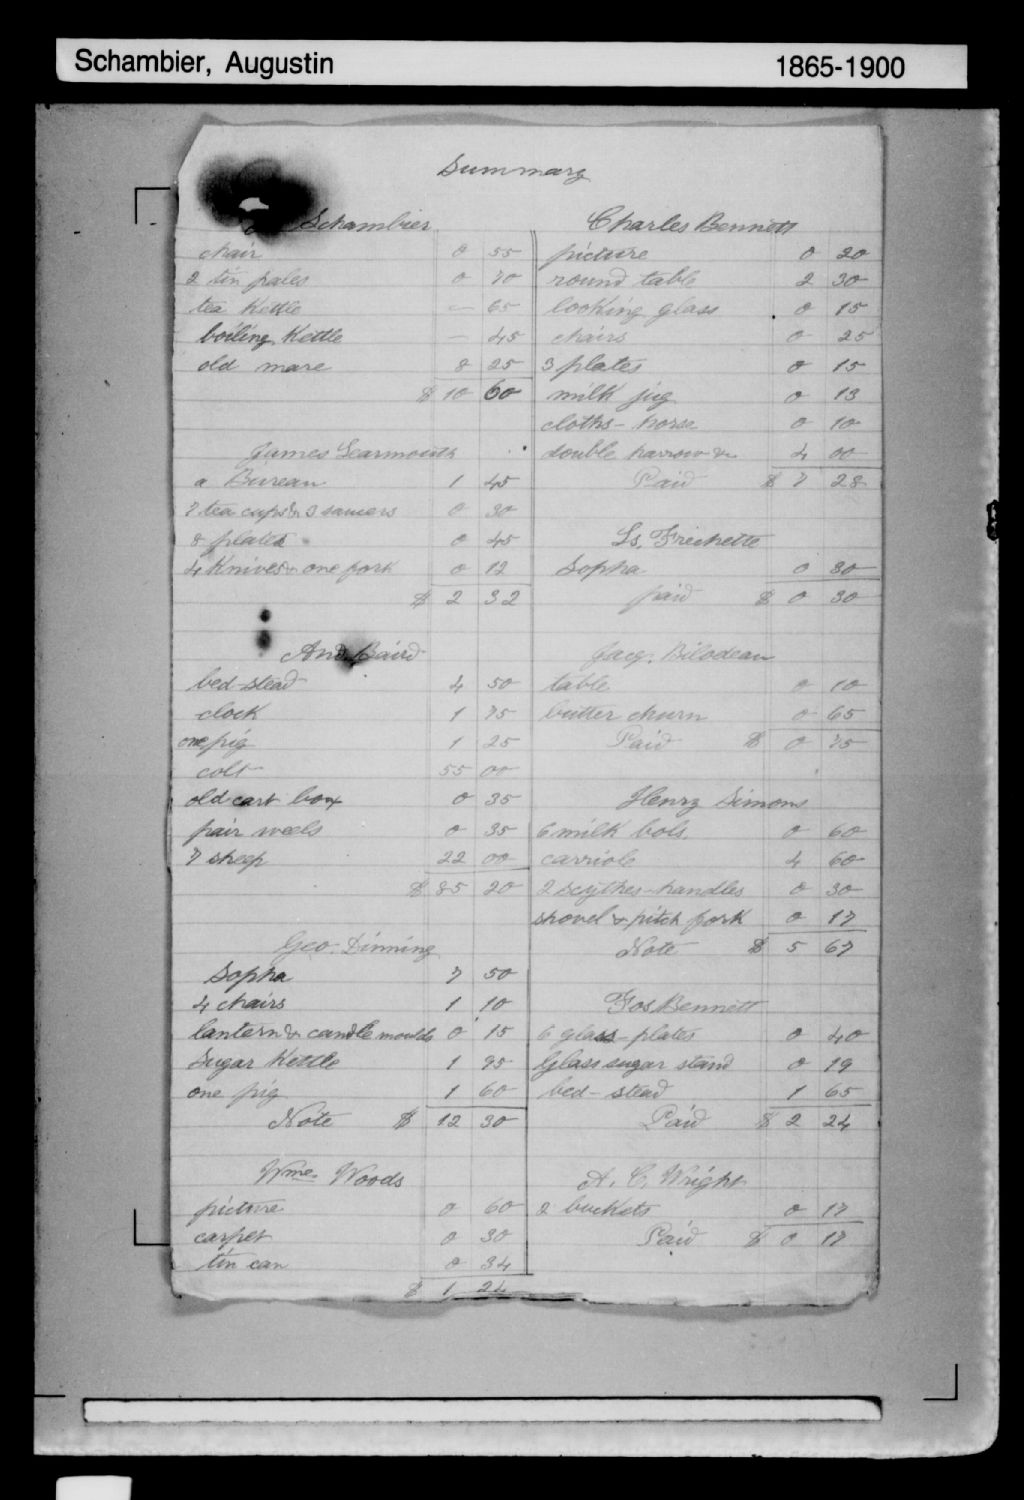 Schambier, Augustin 1865-1900
Summary
Schambier
chair 0 55
2 tin pales 0 70
tea Kettle — 65
boiling Kettle — 45
old mare 8 25
$ 10 60
James Learmouth
a Bureau 1 45
7 tea cups & 3 saucers 0 30
8 plates 0 45
4 Knives & one fork 0 12
$ 2 32
And. Baird
bed-stead 4 50
clock 1 75
one pig 1 25
colt 55 00
old cart box 0 35
pair weels 0 35
7 sheep 22 00
$ 85 20
Geo. Dinning
Sopha 7 50
4 chairs 1 10
lantern & candle moulds 0 15
Sugar Kettle 1 95
one pig 1 60
Note $ 12 30
Wme. Woods
picture 0 60
carpet 0 30
tin can 0 34
$ 1 24
Charles Bennett
picture 0 20
round table 2 30
looking glass 0 15
chairs 0 25
3 plates 0 15
milk jug 0 13
cloths-horse 0 10
double harrow & 4 00
Paid $ 7 28
Ls. Frechette
Sopha 0 30
paid $ 0 30
Jacq. Bilodeau
table 0 10
butter churn 0 65
Paid $ 0 75
Henry Simons
6 milk bols 0 60
carriole 4 60
2 scythes-handles 0 30
shovel & pitch fork 0 17
Note $ 5 67
Jos Bennett
6 glass-plates 0 40
Glass sugar stand 0 19
bed-stead 1 65
Paid $ 2 24
A. C. Wright
2 buckets 0 17
Paid $ 0 17